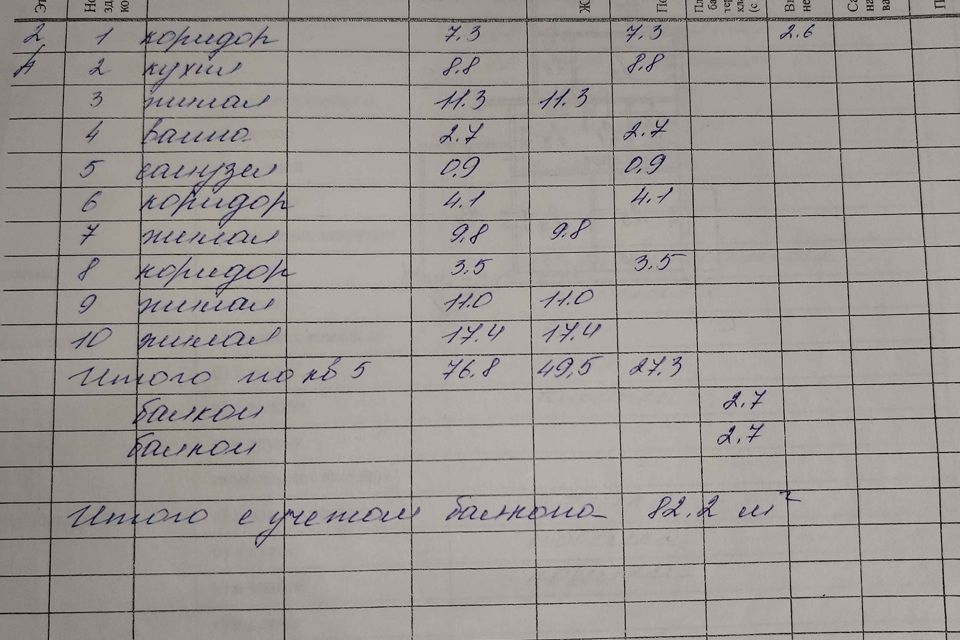 2 1 коридор 7.3 7.3 2.6
А 2 кухня 8.8 8.8
3 жилая 11.3 11.3
4 ванна 2.7 2.7
5 санузел 0.9 0.9
6 коридор 4.1 4.1
7 жилая 9.8 9.8
8 коридор 3.5 3.5
9 жилая 11.0 11.0
10 жилая 17.4 17.4
Итого по кв 5 76.8 49,5 27.3
балкон 2.7
балкон 2.7
Итого с учетом балкона 82.2 м²